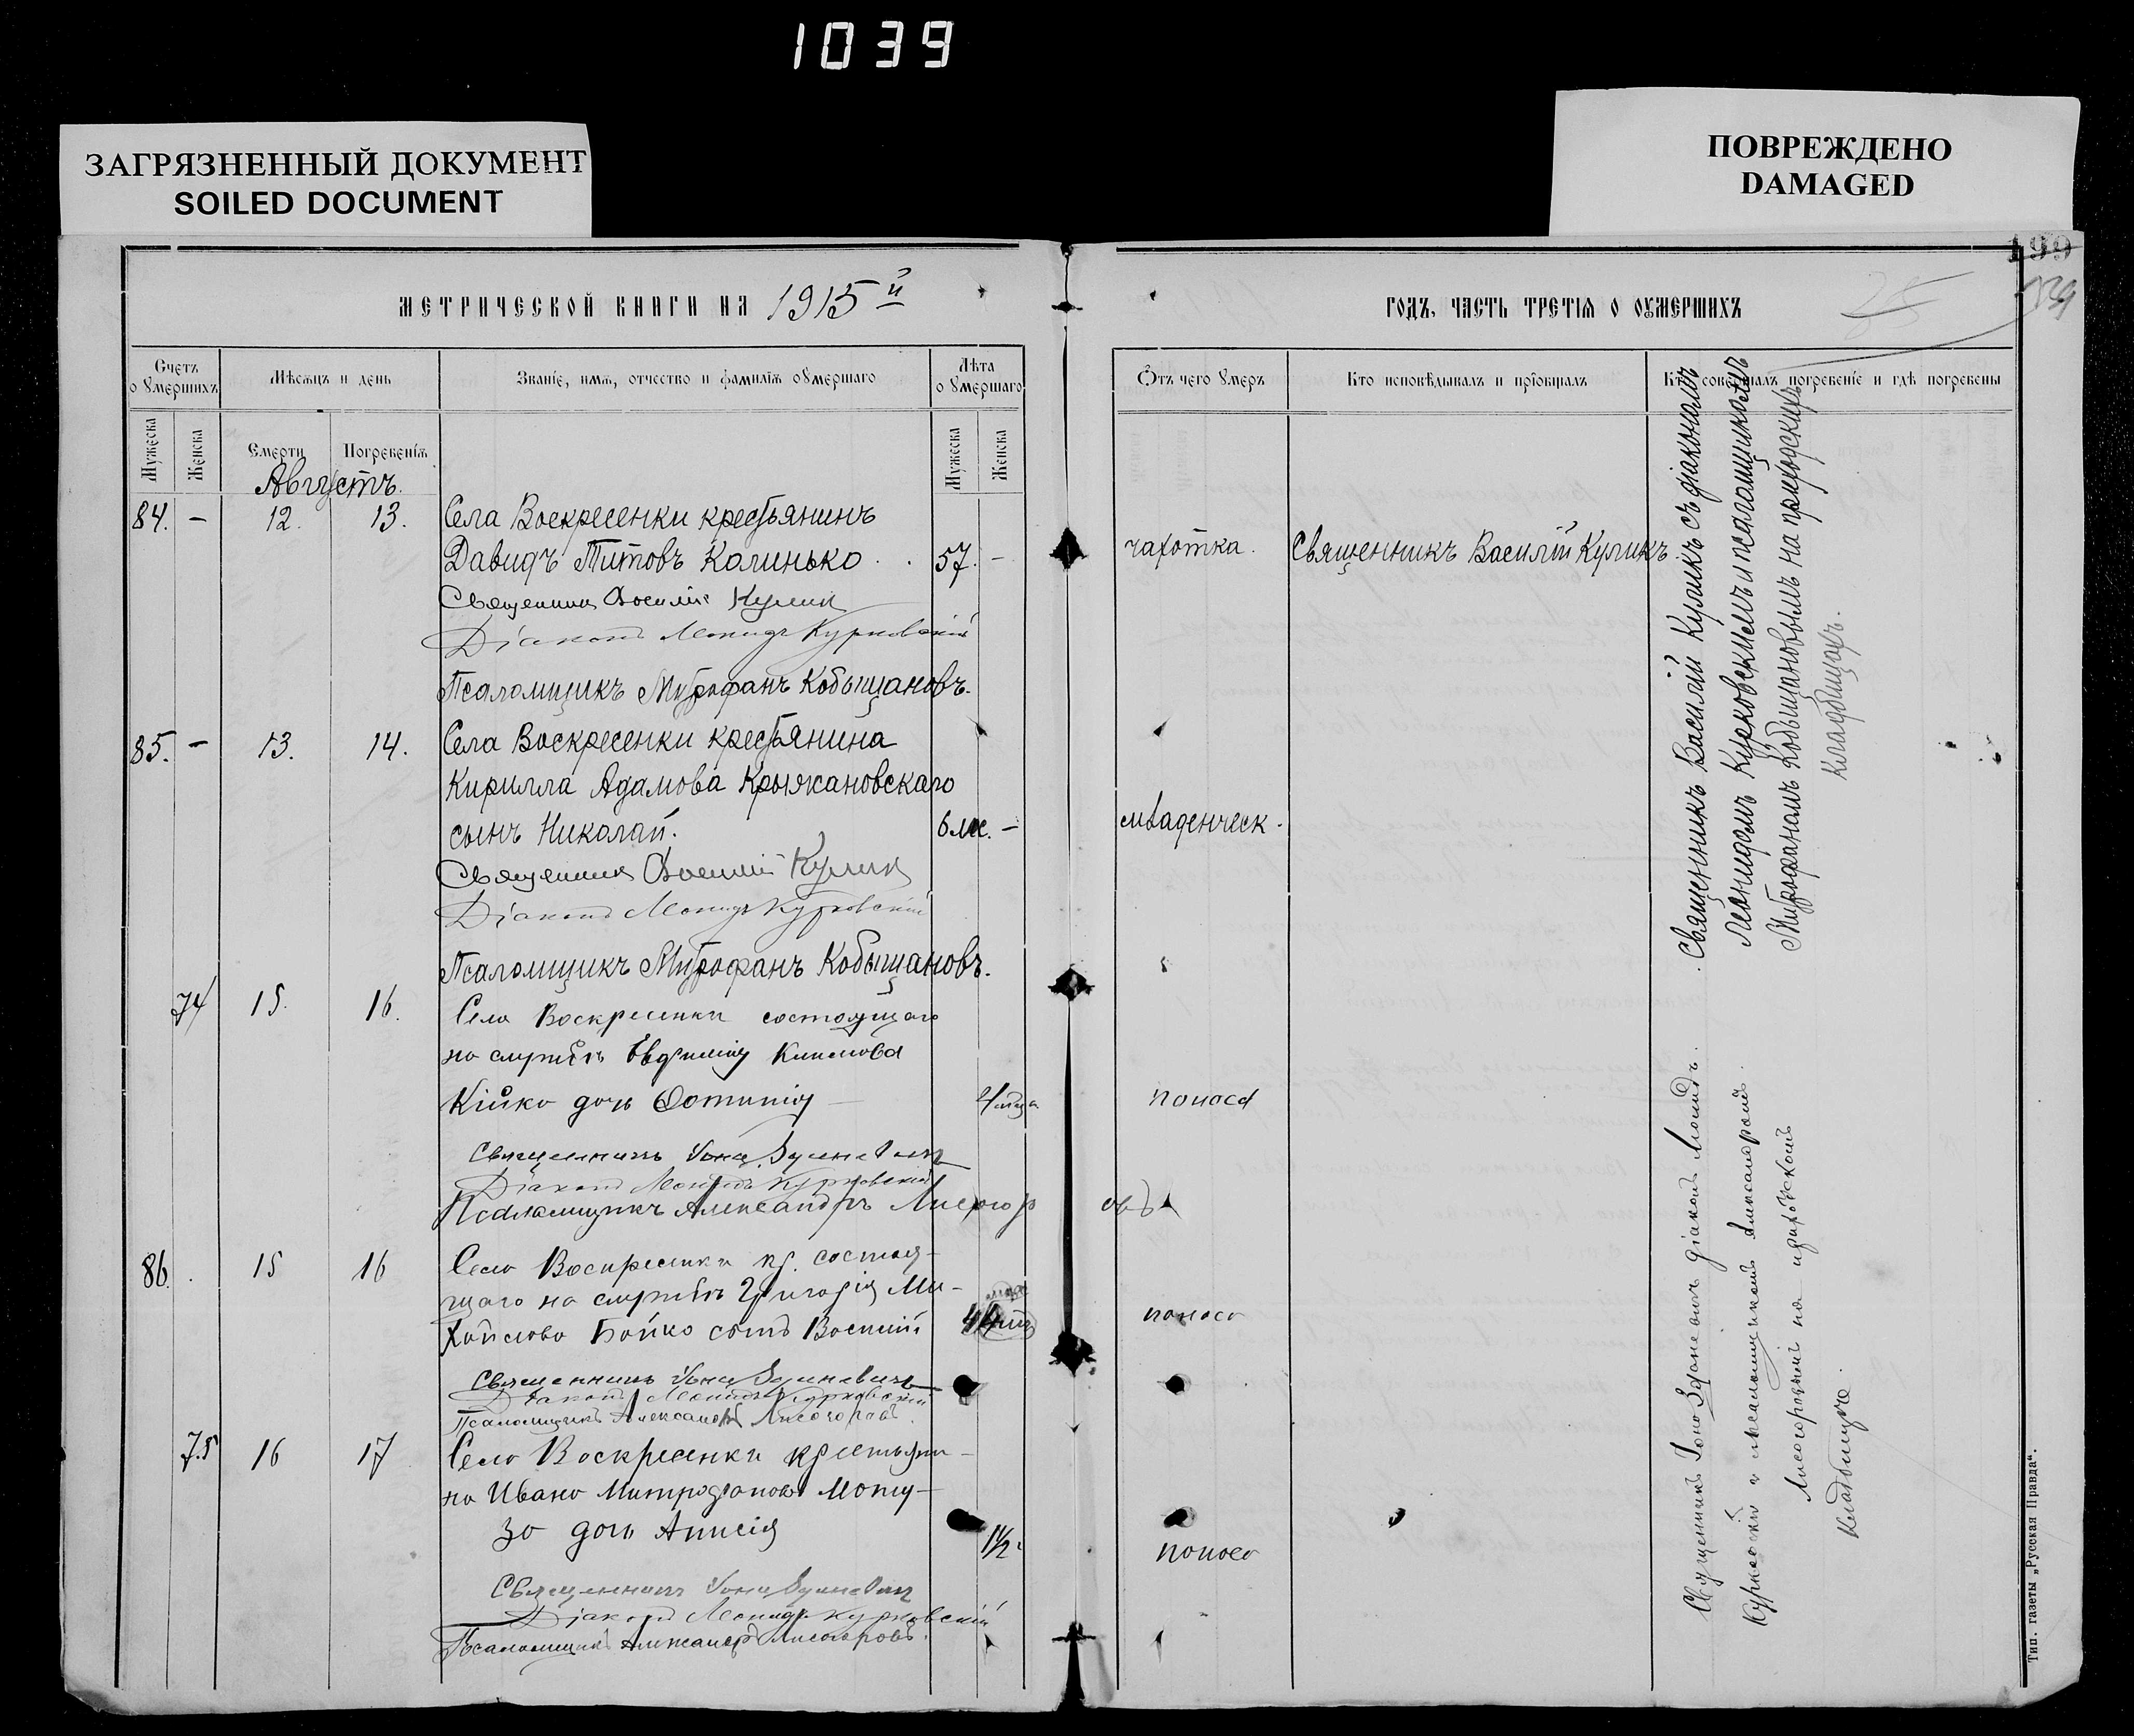 1039
ЗАГРЯЗНЕННЫЙ ДОКУМЕНТ
SOILED DOCUMENT
ПОВРЕЖДЕНО
DAMAGED
199
МЕТРИЧЕСКОЙ КНИГИ НА 1915 й
Счетъ оумершихъ
Мѣсяцъ и день
Званіе, имя, отчество и фамилія оумершаго
Лѣта оумершаго
Мужеска
Женска
Смерти
Погребенія
Мужеска
Женска
Августъ.
84. – 12. 13. Села Воскресенки крестьянинъ
Давидъ Титовъ Калинько . . 57. –
Священникъ Василій Куликъ
Діаконъ Леонидъ Курковскій
Псаломщикъ Митрофанъ Кобыщановъ.
85. – 13. 14. Села Воскресенки крестьянина
Кирилла Адамова Крыжановскаго
сынъ Николай. 6 ме. –
Священникъ Василій Куликъ
Діаконъ Леонидъ Курковскій
Псаломщикъ Митрофанъ Кобыщановъ.
74 15. 16. Села Воскресенки состоящаго
на службѣ Климова
Кійко дочь 
Священникъ Іона Зданевичъ
Діаконъ Леонидъ Курковскій
Псаломщикъ Александръ Лисогоровъ
86. 15 16 Села Воскресенки кр. состоя-
щаго на службѣ Григорія Ми-
хайлова Бойко сынъ Василій
Священникъ Іона Зданевичъ
Діаконъ Леонидъ Курковскій
Псаломщикъ Александръ Лисогоровъ
75 16 17 Села Воскресенки крестьяни-
на Ивана Митрофанова Мату-
зо дочь Анисія 1½
Священникъ Іона Зданевичъ
Діаконъ Леонидъ Курковскій
Псаломщикъ Александръ Лисогоровъ.
ГОДЪ, ЧАСТЬ ТРЕТІЯ О ОУМЕРШИХЪ
Отъ чего умеръ
Кто исповѣдывалъ и пріобщалъ
Кто совершалъ погребеніе и гдѣ погребены
чахотка. Священникъ Василій Куликъ.
младенческ.
поноса
поноса
поноса
Священникъ Василій Куликъ съ діакономъ
Леонидомъ Курковскимъ и псаломщикомъ
Митрофаномъ Кобыщановымъ на приходскихъ
кладбищахъ.
Священникъ Іона Зданевичъ діаконъ Леонидъ
Курковскій и псаломщикомъ Александромъ
Лисогоровымъ на приходскомъ
кладбище.
Тип. газеты „Русская Правда“.